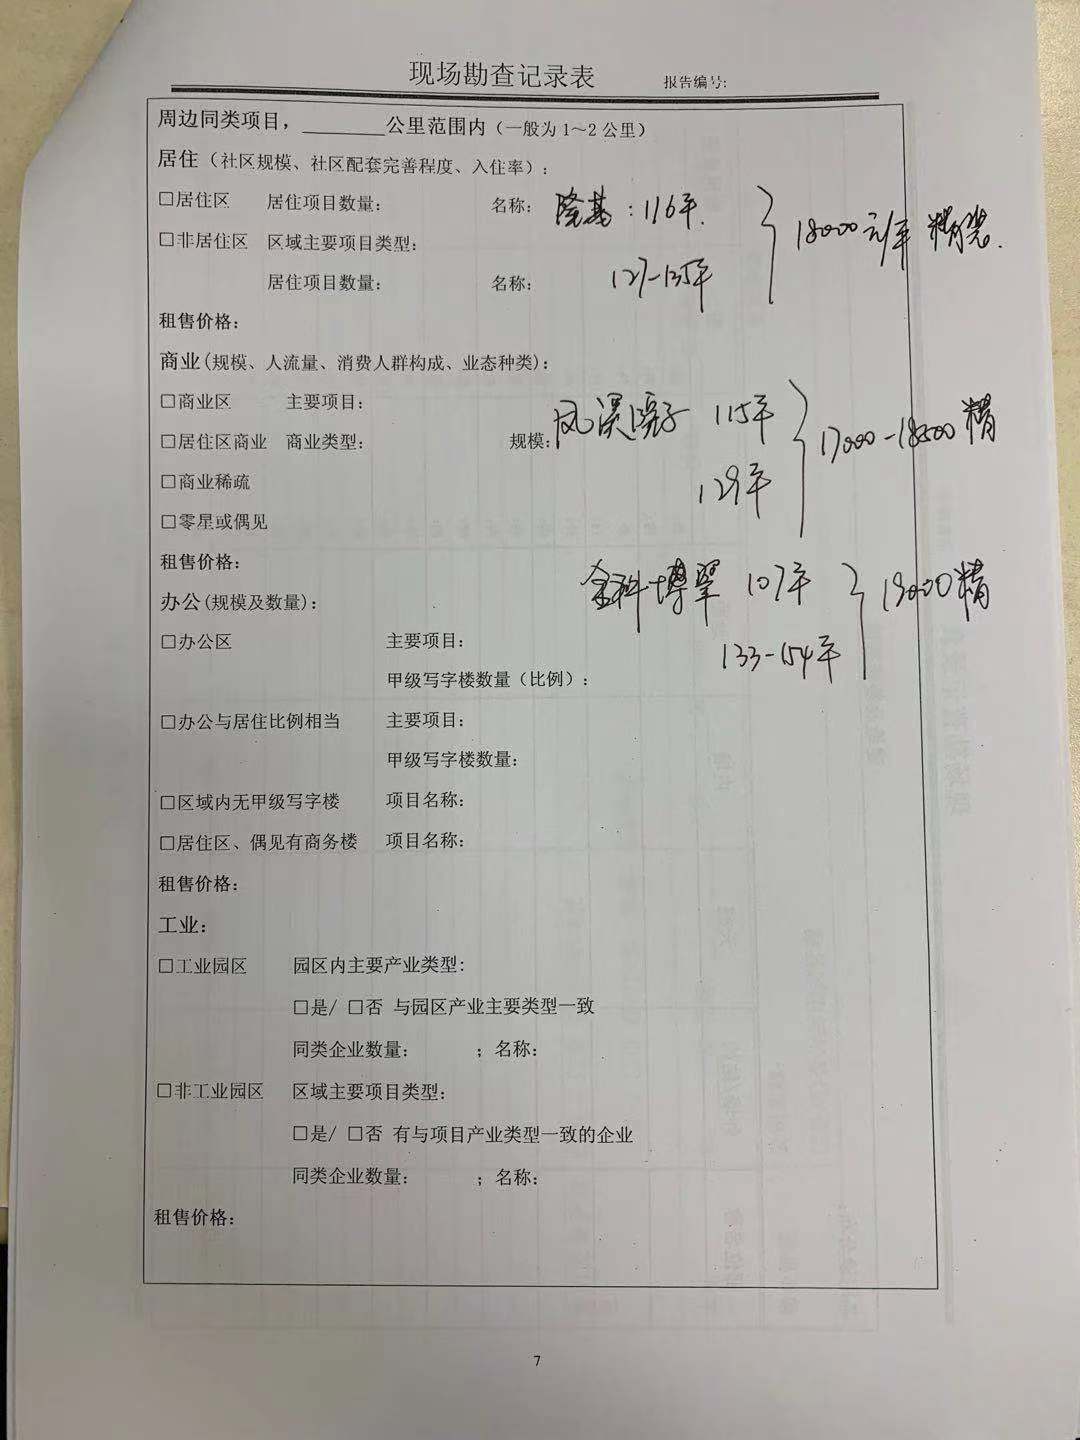 现场勘查记录表 报告编号:
周边同类项目，________公里范围内（一般为1～2公里）
居住（社区规模、社区配套完善程度、入住率）:
□居住区 居住项目数量: 名称: 隆基:116平.
□非居住区 区域主要项目类型: 18000元/平 精装.
居住项目数量: 名称: 127-135平
租售价格:
商业(规模、人流量、消费人群构成、业态种类):
□商业区 主要项目: 115平
□居住区商业 商业类型: 规模: 凤溪院子 17000-18500 精
□商业稀疏 129平
□零星或偶见
租售价格:
办公(规模及数量): 金科博翠 107平 18000精
□办公区 主要项目: 133-154平
甲级写字楼数量（比例）:
□办公与居住比例相当 主要项目:
甲级写字楼数量:
□区域内无甲级写字楼 项目名称:
□居住区、偶见有商务楼 项目名称:
租售价格:
工业:
□工业园区 园区内主要产业类型:
□是/ □否 与园区产业主要类型一致
同类企业数量: ；名称:
□非工业园区 区域主要项目类型:
□是/ □否 有与项目产业类型一致的企业
同类企业数量: ；名称:
租售价格:
7